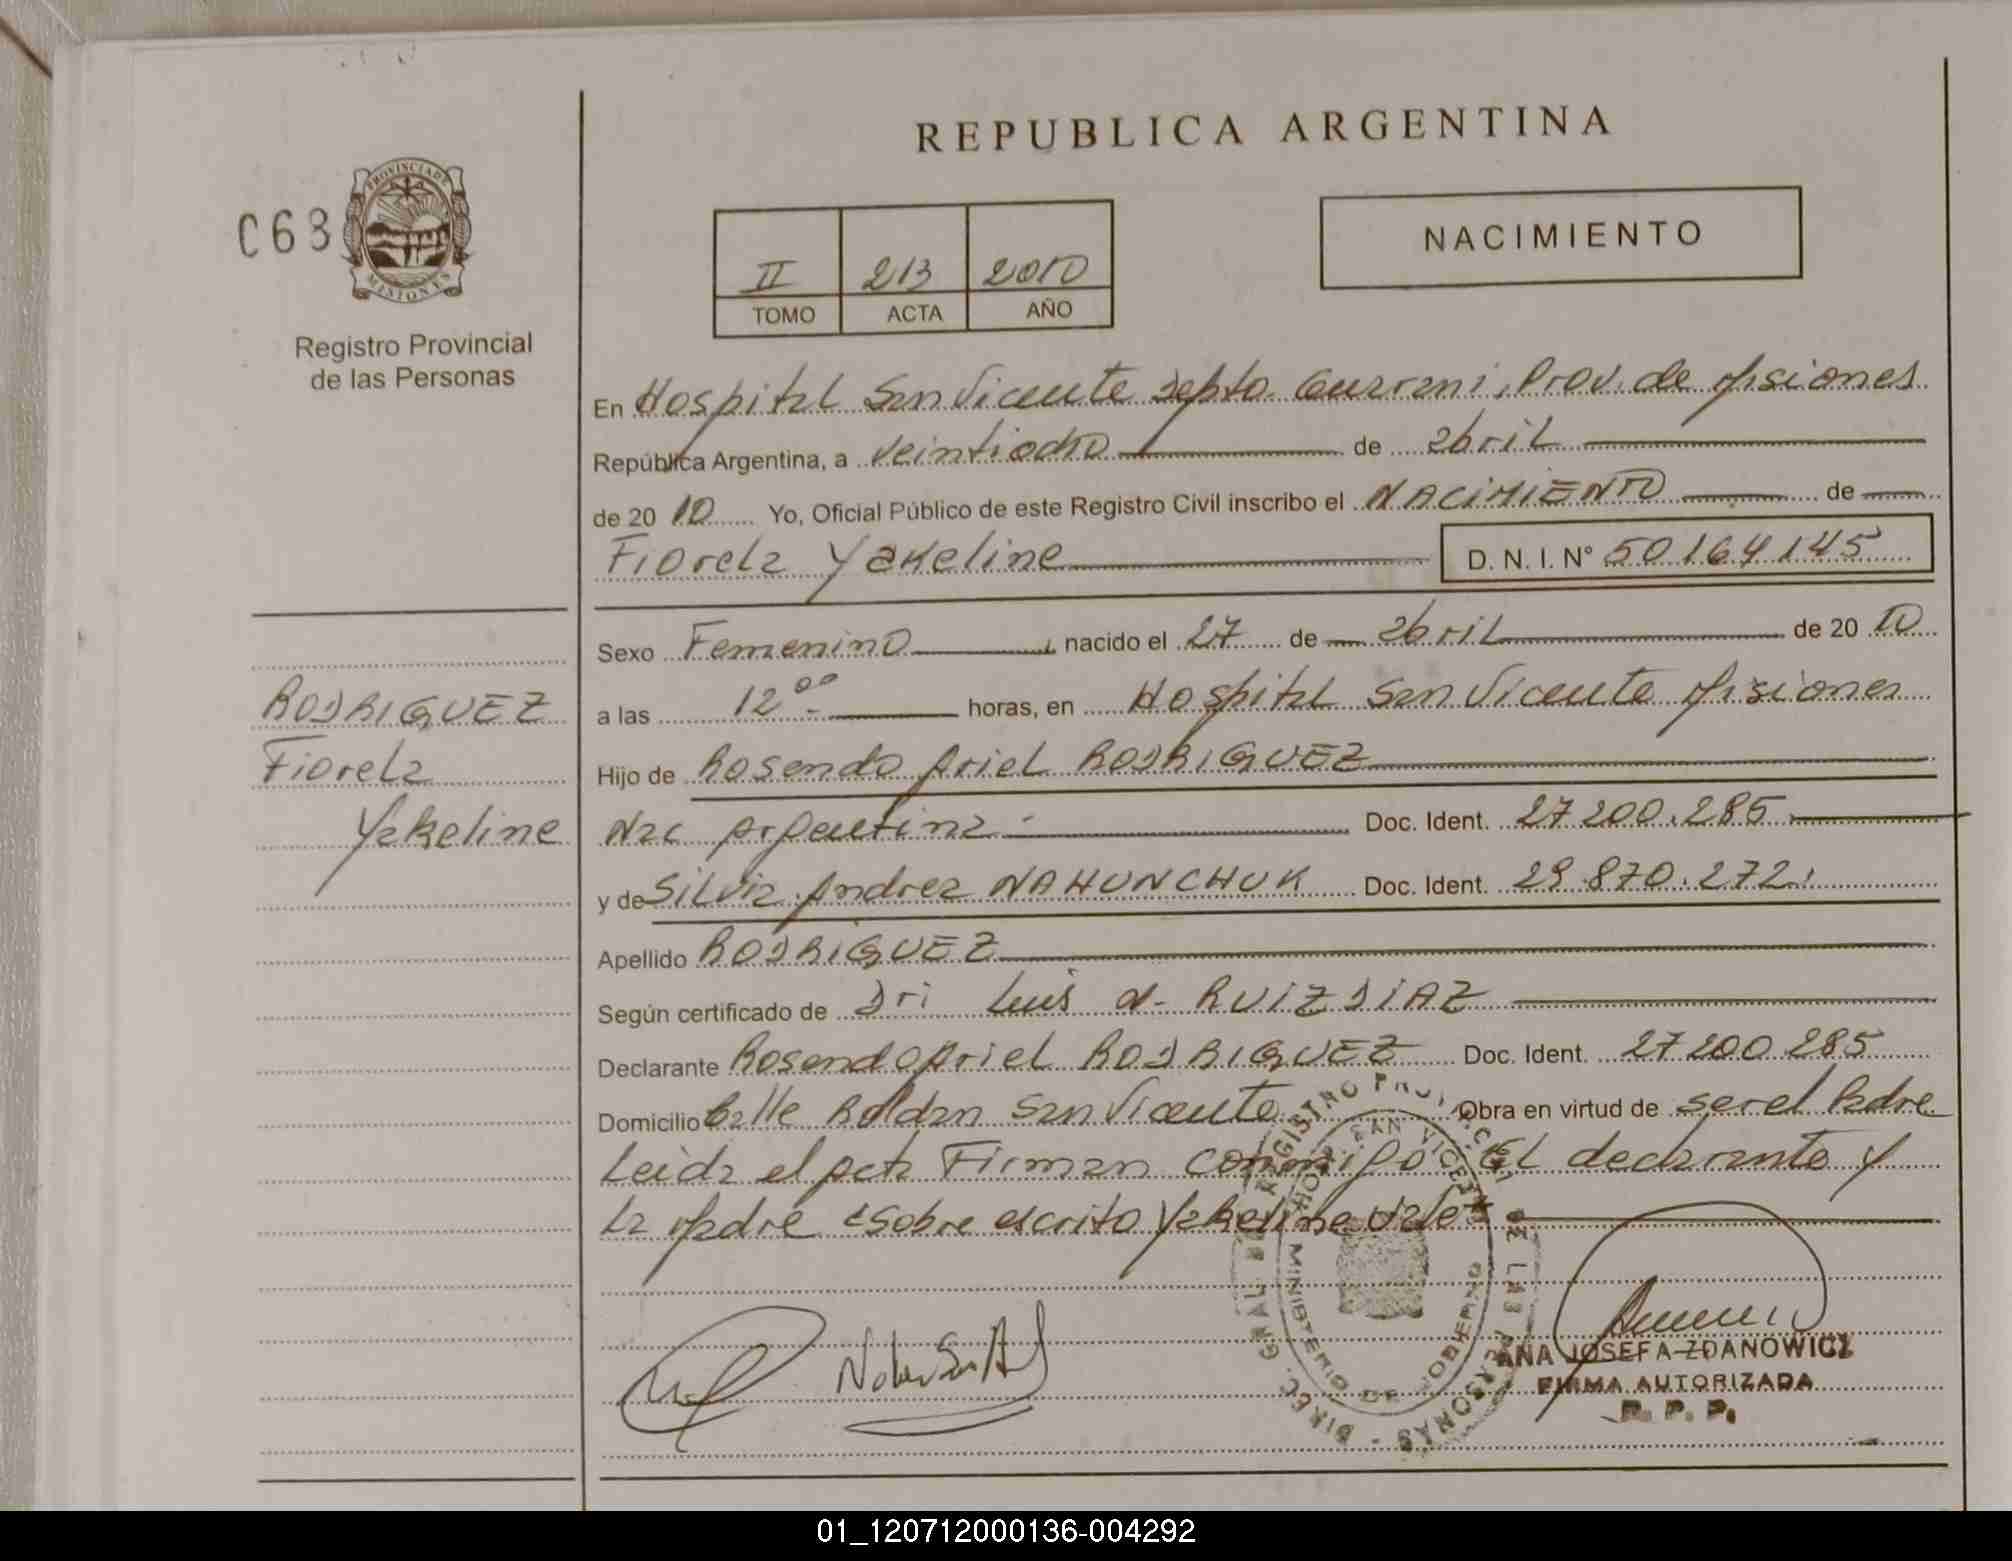 REPUBLICA ARGENTINA
C63
PROVINCIA DE MISIONES
Registro Provincial
de las Personas
II 213 2010
TOMO ACTA AÑO
NACIMIENTO
En Hospital San Vicente Depto. Guarani, Prov. de Misiones
República Argentina, a veintiocho de abril
de 2010 Yo, Oficial Público de este Registro Civil inscribo el NACIMIENTO de
Fiorela Yakeline D. N. I. N° 50164145
Sexo Femenino, nacido el 27 de abril de 2010
a las 12 00 horas, en Hospital San Vicente Misiones
Hijo de Rosendo Ariel RODRIGUEZ
Nac Argentina Doc. Ident. 27 200.285
y de Silvia Andrea NAHUNCHUK Doc. Ident. 29.870.272
Apellido RODRIGUEZ
Según certificado de Dr Luis A. RUIZ DIAZ
Declarante Rosendo Ariel RODRIGUEZ Doc. Ident. 27 200 285
Domicilio Calle Roldan San Vicente Obra en virtud de ser el Padre
Leida el acta Firman conmigo El declarante y
la Madre sobre escrito Yakeline Vale
RODRIGUEZ
Fiorela
Yakeline
DIREC. GRAL. DEL REGISTRO PROVINCIAL DE LAS PERSONAS
SAN VICENTE
MINISTERIO DE GOBIERNO
ANA JOSEFA ZDANOWICZ
FIRMA AUTORIZADA
R. P. P.
01_120712000136-004292